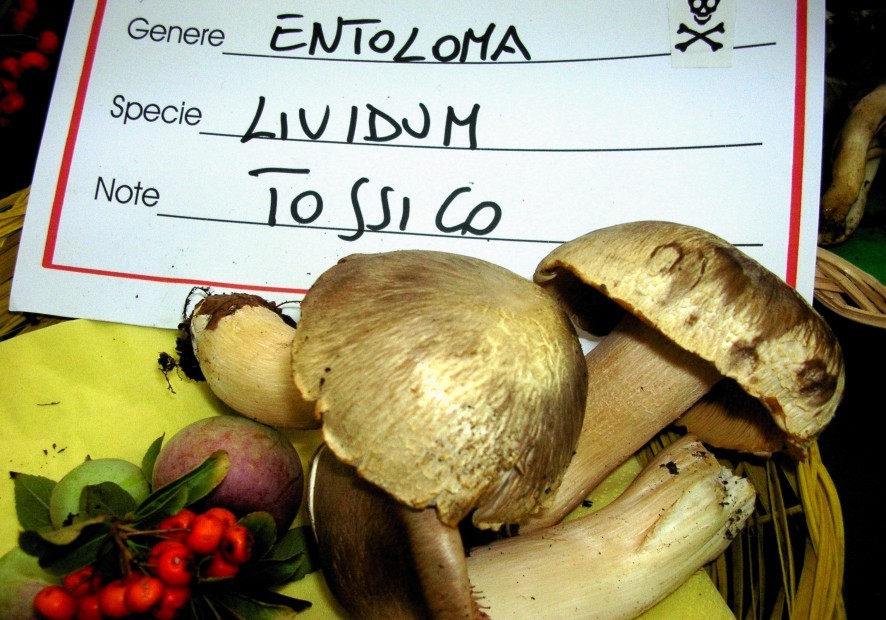 Genere ENTOLOMA
Specie LIVIDUM
Note TOSSICO